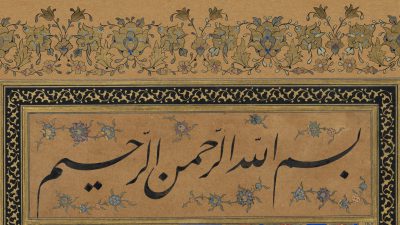 بسم اللّه الرّحمن الرّحیم